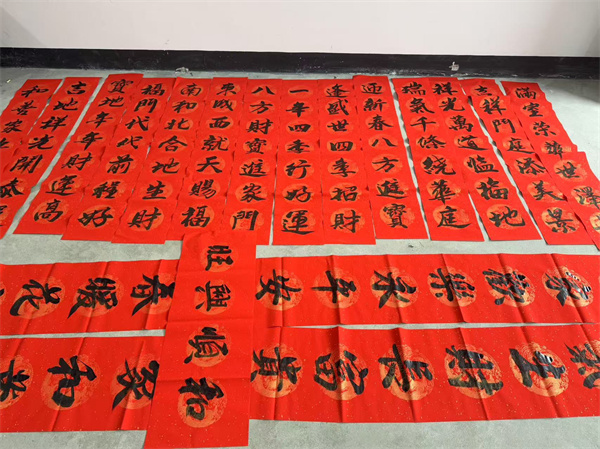 滿堂榮華世澤
吉祥門庭添美景
祥光萬道臨福地
瑞氣千條繞華庭
迎新春八方進寶
逢盛世四季招財
一年四季行好運
八方財寶進家門
東成西就天賜福
南和北合地生財
福門代代前程好
寶地年年財逢高
吉地祥光開
和善家
旺興順和
家歡樂永平安
氣生財長富貴
春暖花
和